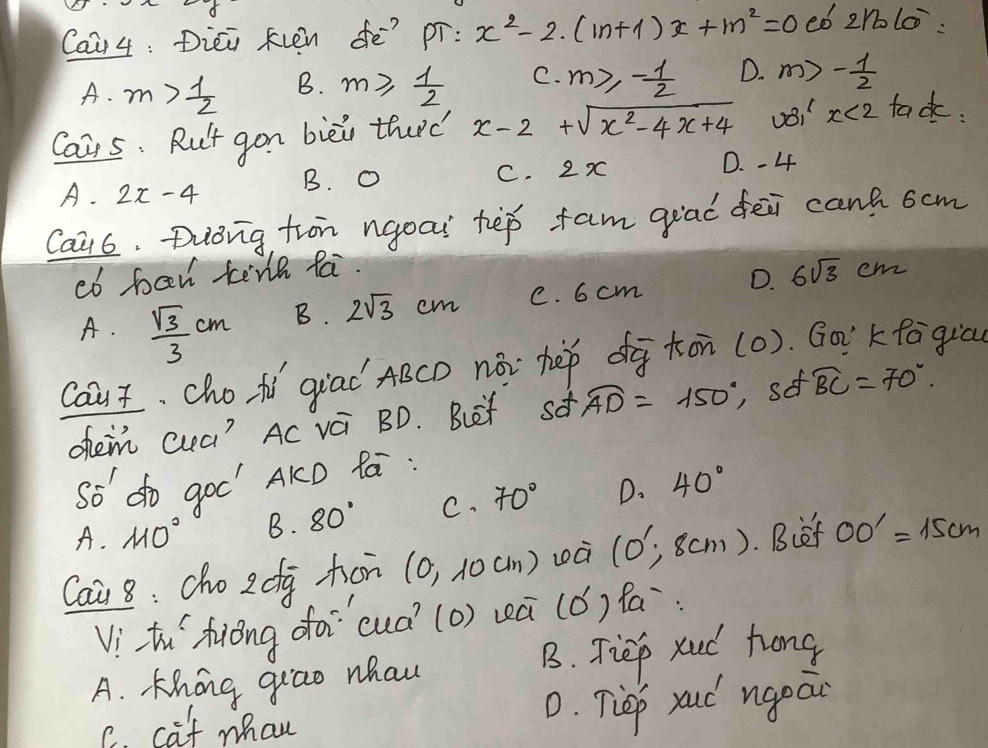 Câu 4: Điều kiện để PT: x² - 2.(m+1)x + m² = 0 có 2 n0 là:
A. m > 1/2 B. m ≥ 1/2 C. m ≥ -1/2 D. m > -1/2
Câu 5. Rút gọn biểu thức x - 2 + √(x² - 4x + 4) với x<2 ta đc:
A. 2x - 4 B. 0 C. 2x D. -4
Câu 6. Đường tròn ngoại tiếp tam giác đều cạnh 6cm
có bán kính là.
A. √3/3 cm B. 2√3 cm C. 6 cm D. 6√3 cm
Câu 7. Cho tứ giác ABCD nội tiếp đg tròn (O). Gọi K là giao
điểm của AC và BD. Biết sđ AD = 150°, sđ BC = 70°.
Số đo góc AKD là:
A. 110° B. 80° C. 70° D. 40°
Câu 8. Cho 2 đg tròn (O, 10 cm) và (O'; 8cm). Biết OO' = 15cm
Vị trí tương đối của (O) và (O') là:
A. Không giao nhau B. Tiếp xúc trong
C. cắt nhau D. Tiếp xúc ngoài